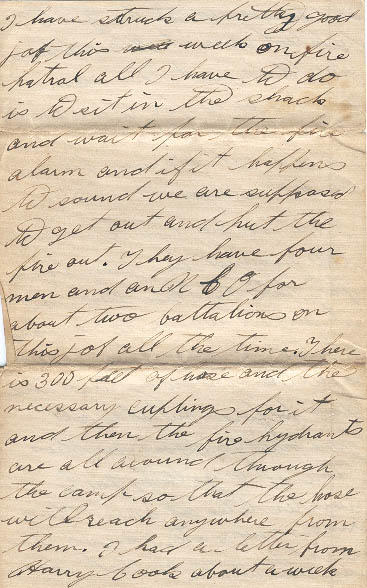 I have struck a pretty good
job this week on fire
patrol all I have to do
is to sit in the shack
and wait for the fire
alarm and if it happens
to sound we are supposed
to get out and put the
fire out. They have four
men and an N C O for
about two battalions on
this job all the time. There
is 300 feet of hose and the
necessary cuplings for it
and then the fire hydrants
are all around through
the camp so that the hose
will reach anywhere from
them. I had a letter from
Harry Cook about a week